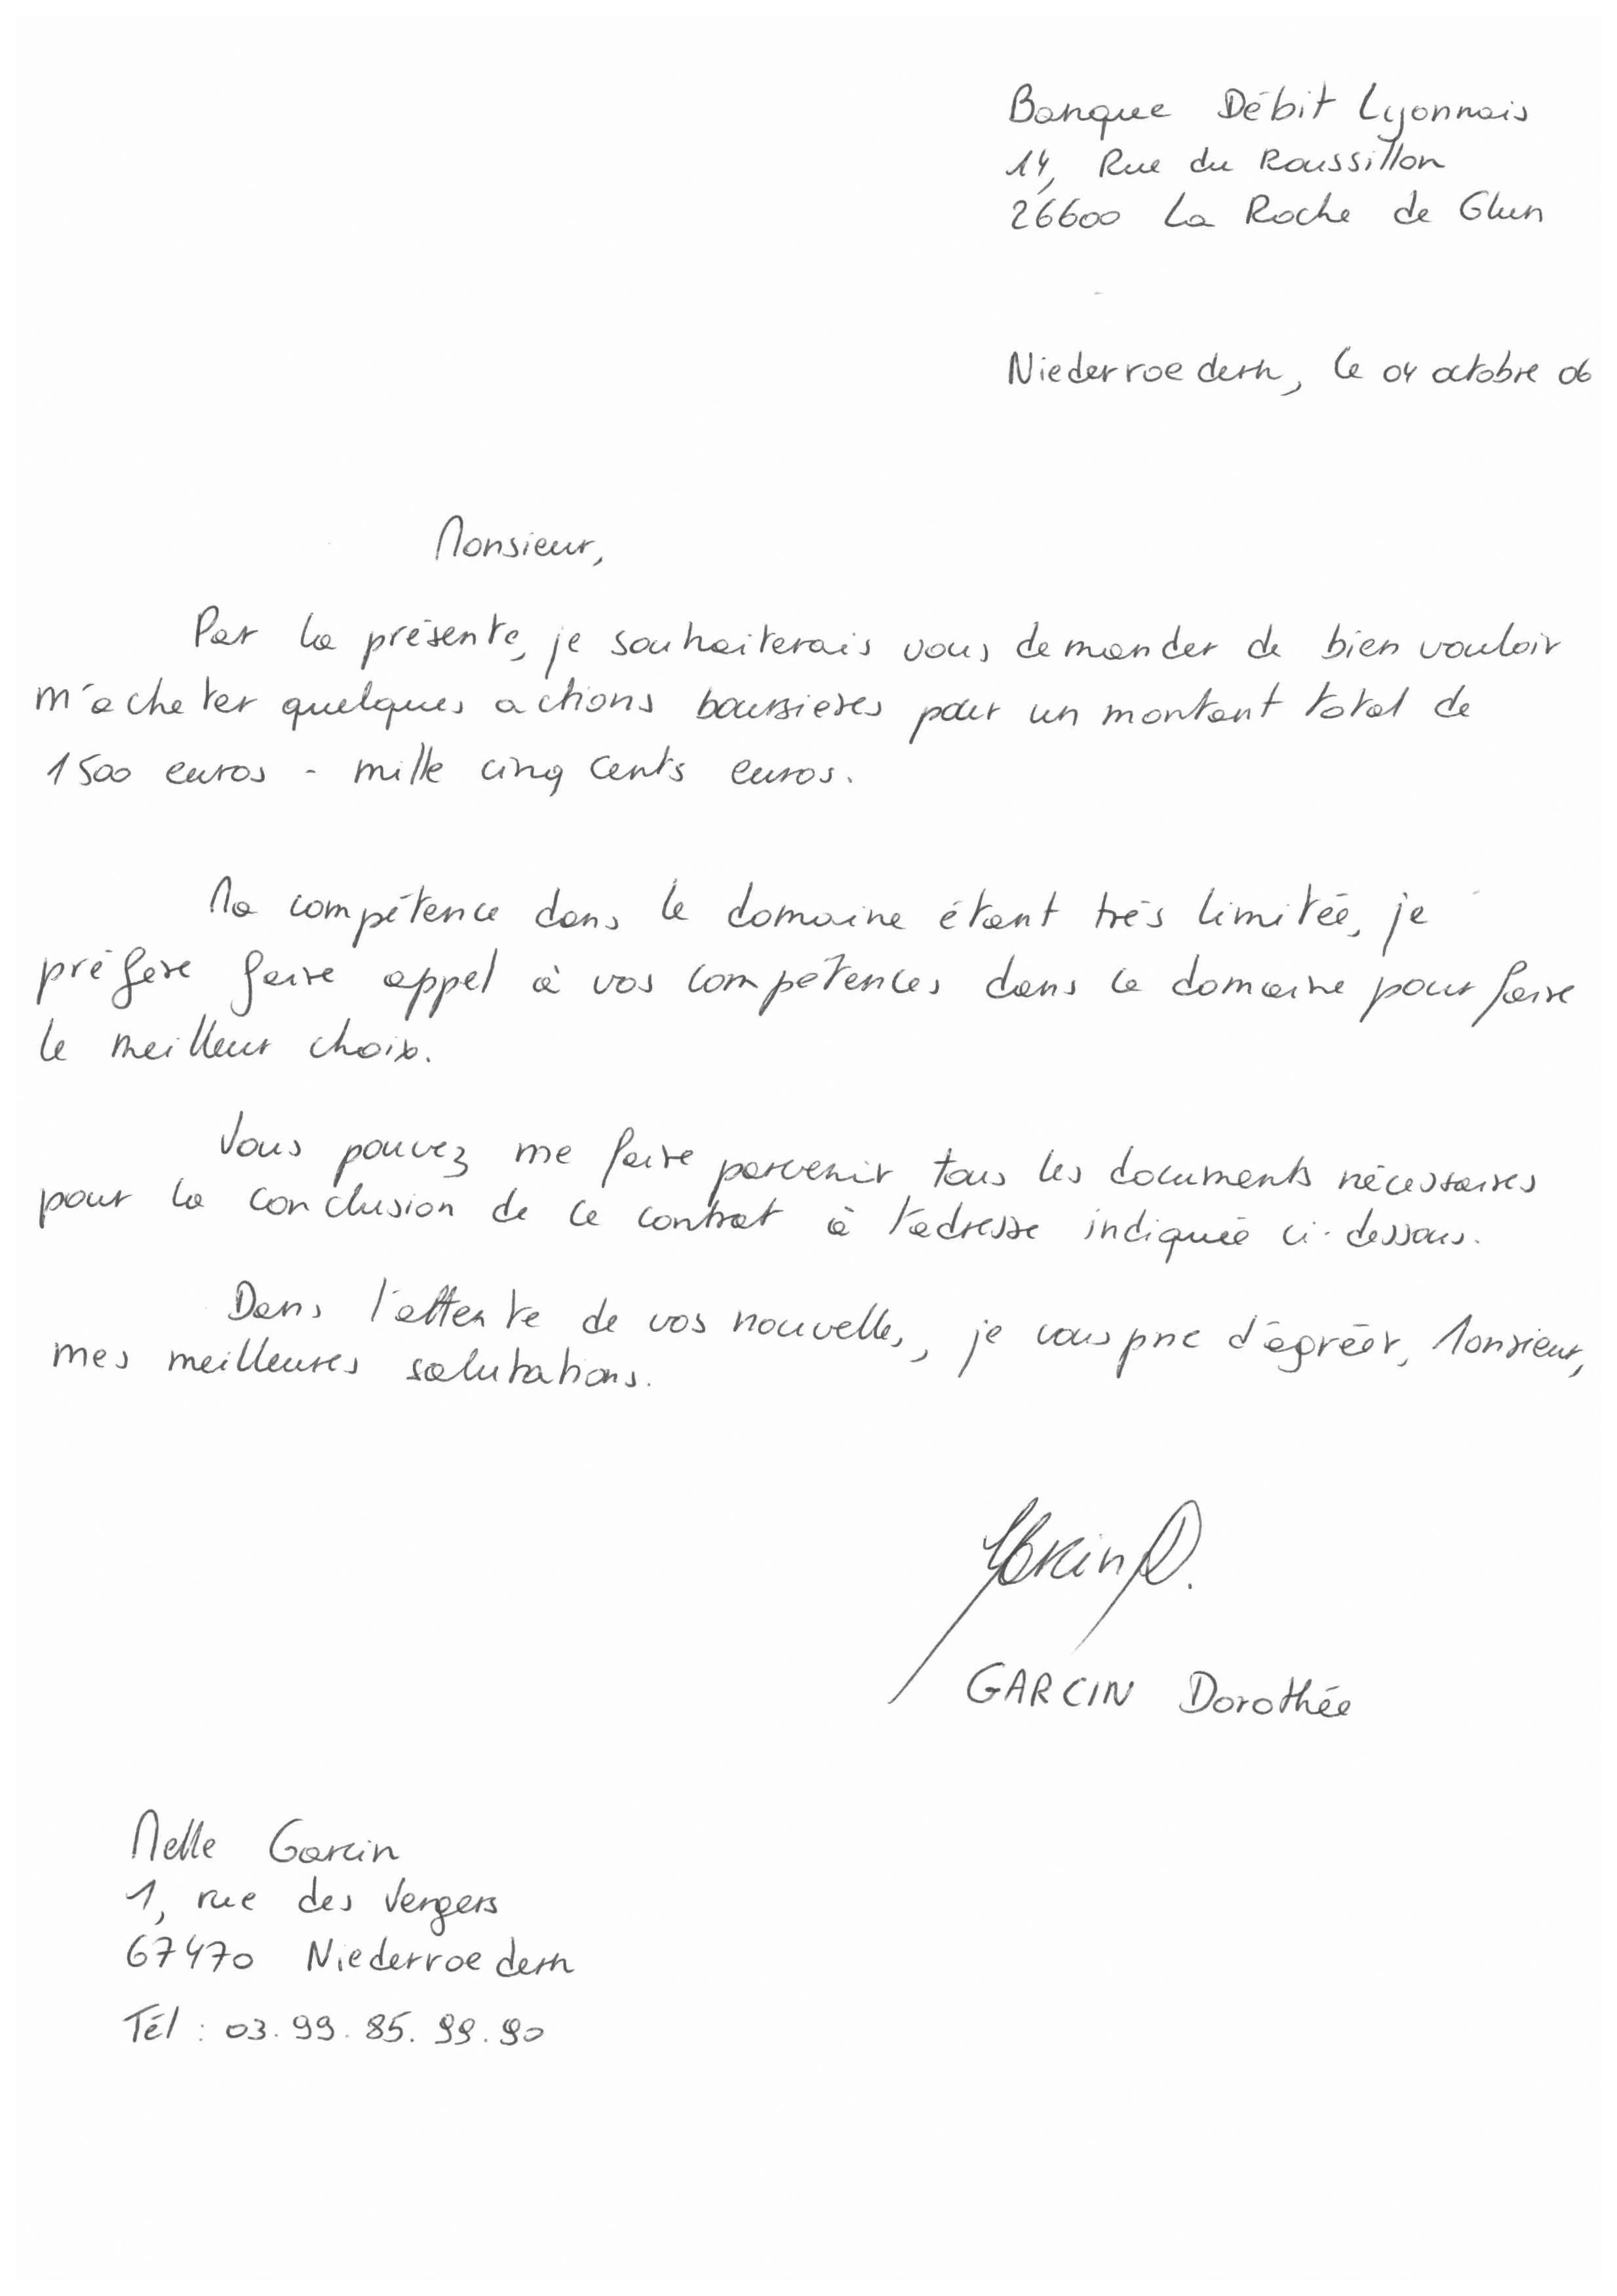 Banque Débit Lyonnais
14, Rue du Roussillon
26600 La Roche de Glun
Niederroedern, le 04 octobre 06
Monsieur,
Par la présente, je souhaiterais vous demander de bien vouloir
m'acheter quelques actions boursieres pour un montant total de
1500 euros - mille cinq cents euros.
Ma compétence dans le domaine étant très limitée, je
préfère faire appel à vos compétences dans ce domaine pour faire
le meilleur choix.
Vous pouvez me faire parvenir tous les documents nécessaires
pour la conclusion de ce contrat à l'adresse indiquée ci-dessous.
Dans l'attente de vos nouvelles, je vous prie d'agréer, Monsieur,
mes meilleures salutations.
Garcin D.
GARCIN Dorothée
Melle Garcin
1, rue des Vergers
67470 Niederroedern
Tél : 03.99.85.99.90